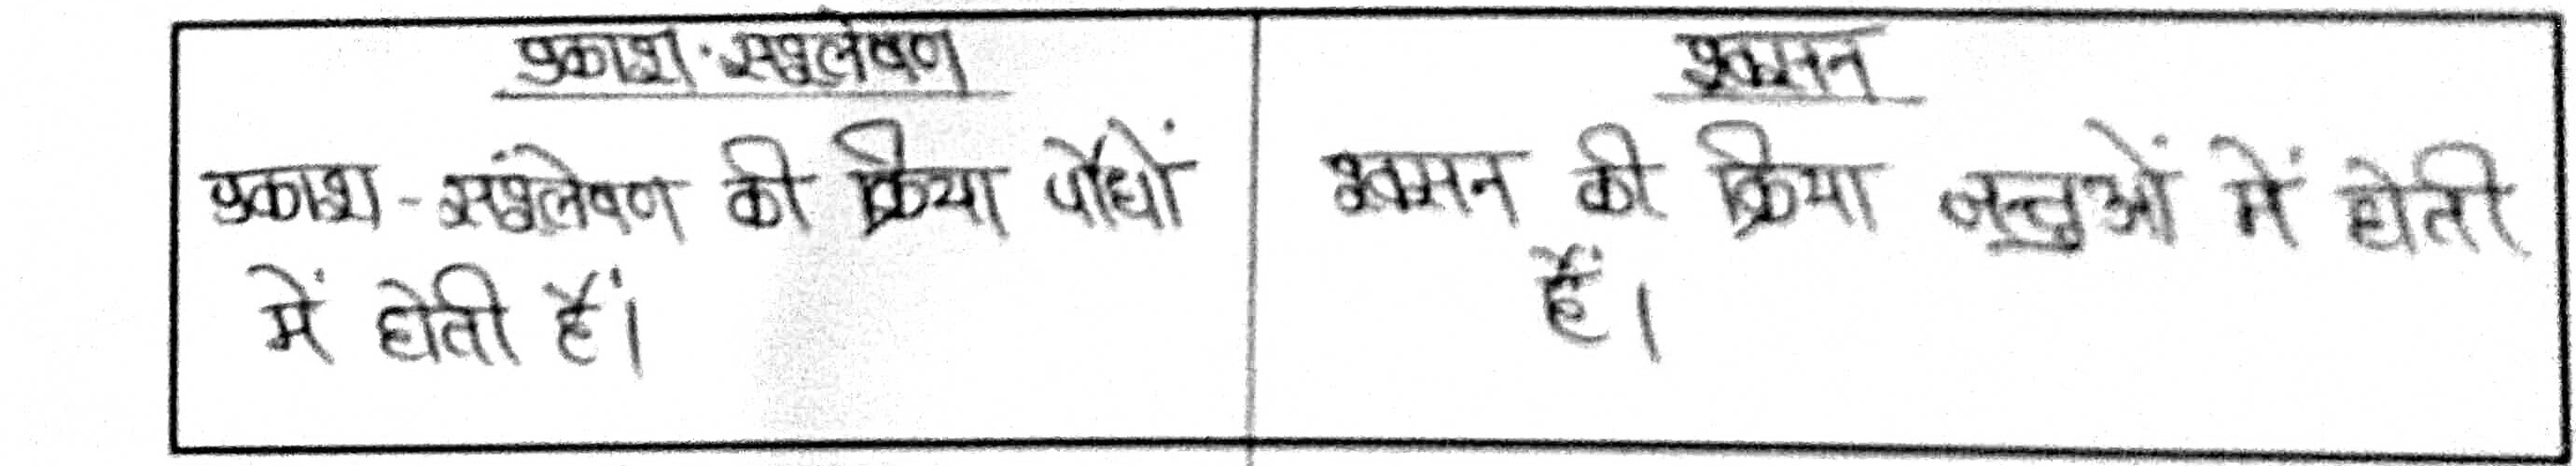 प्रकाश-संश्लेषण
प्रकाश-संश्लेषण की क्रिया पौधों
में होती हैं।
श्वसन
श्वसन की क्रिया जन्तुओं में होती
हैं।